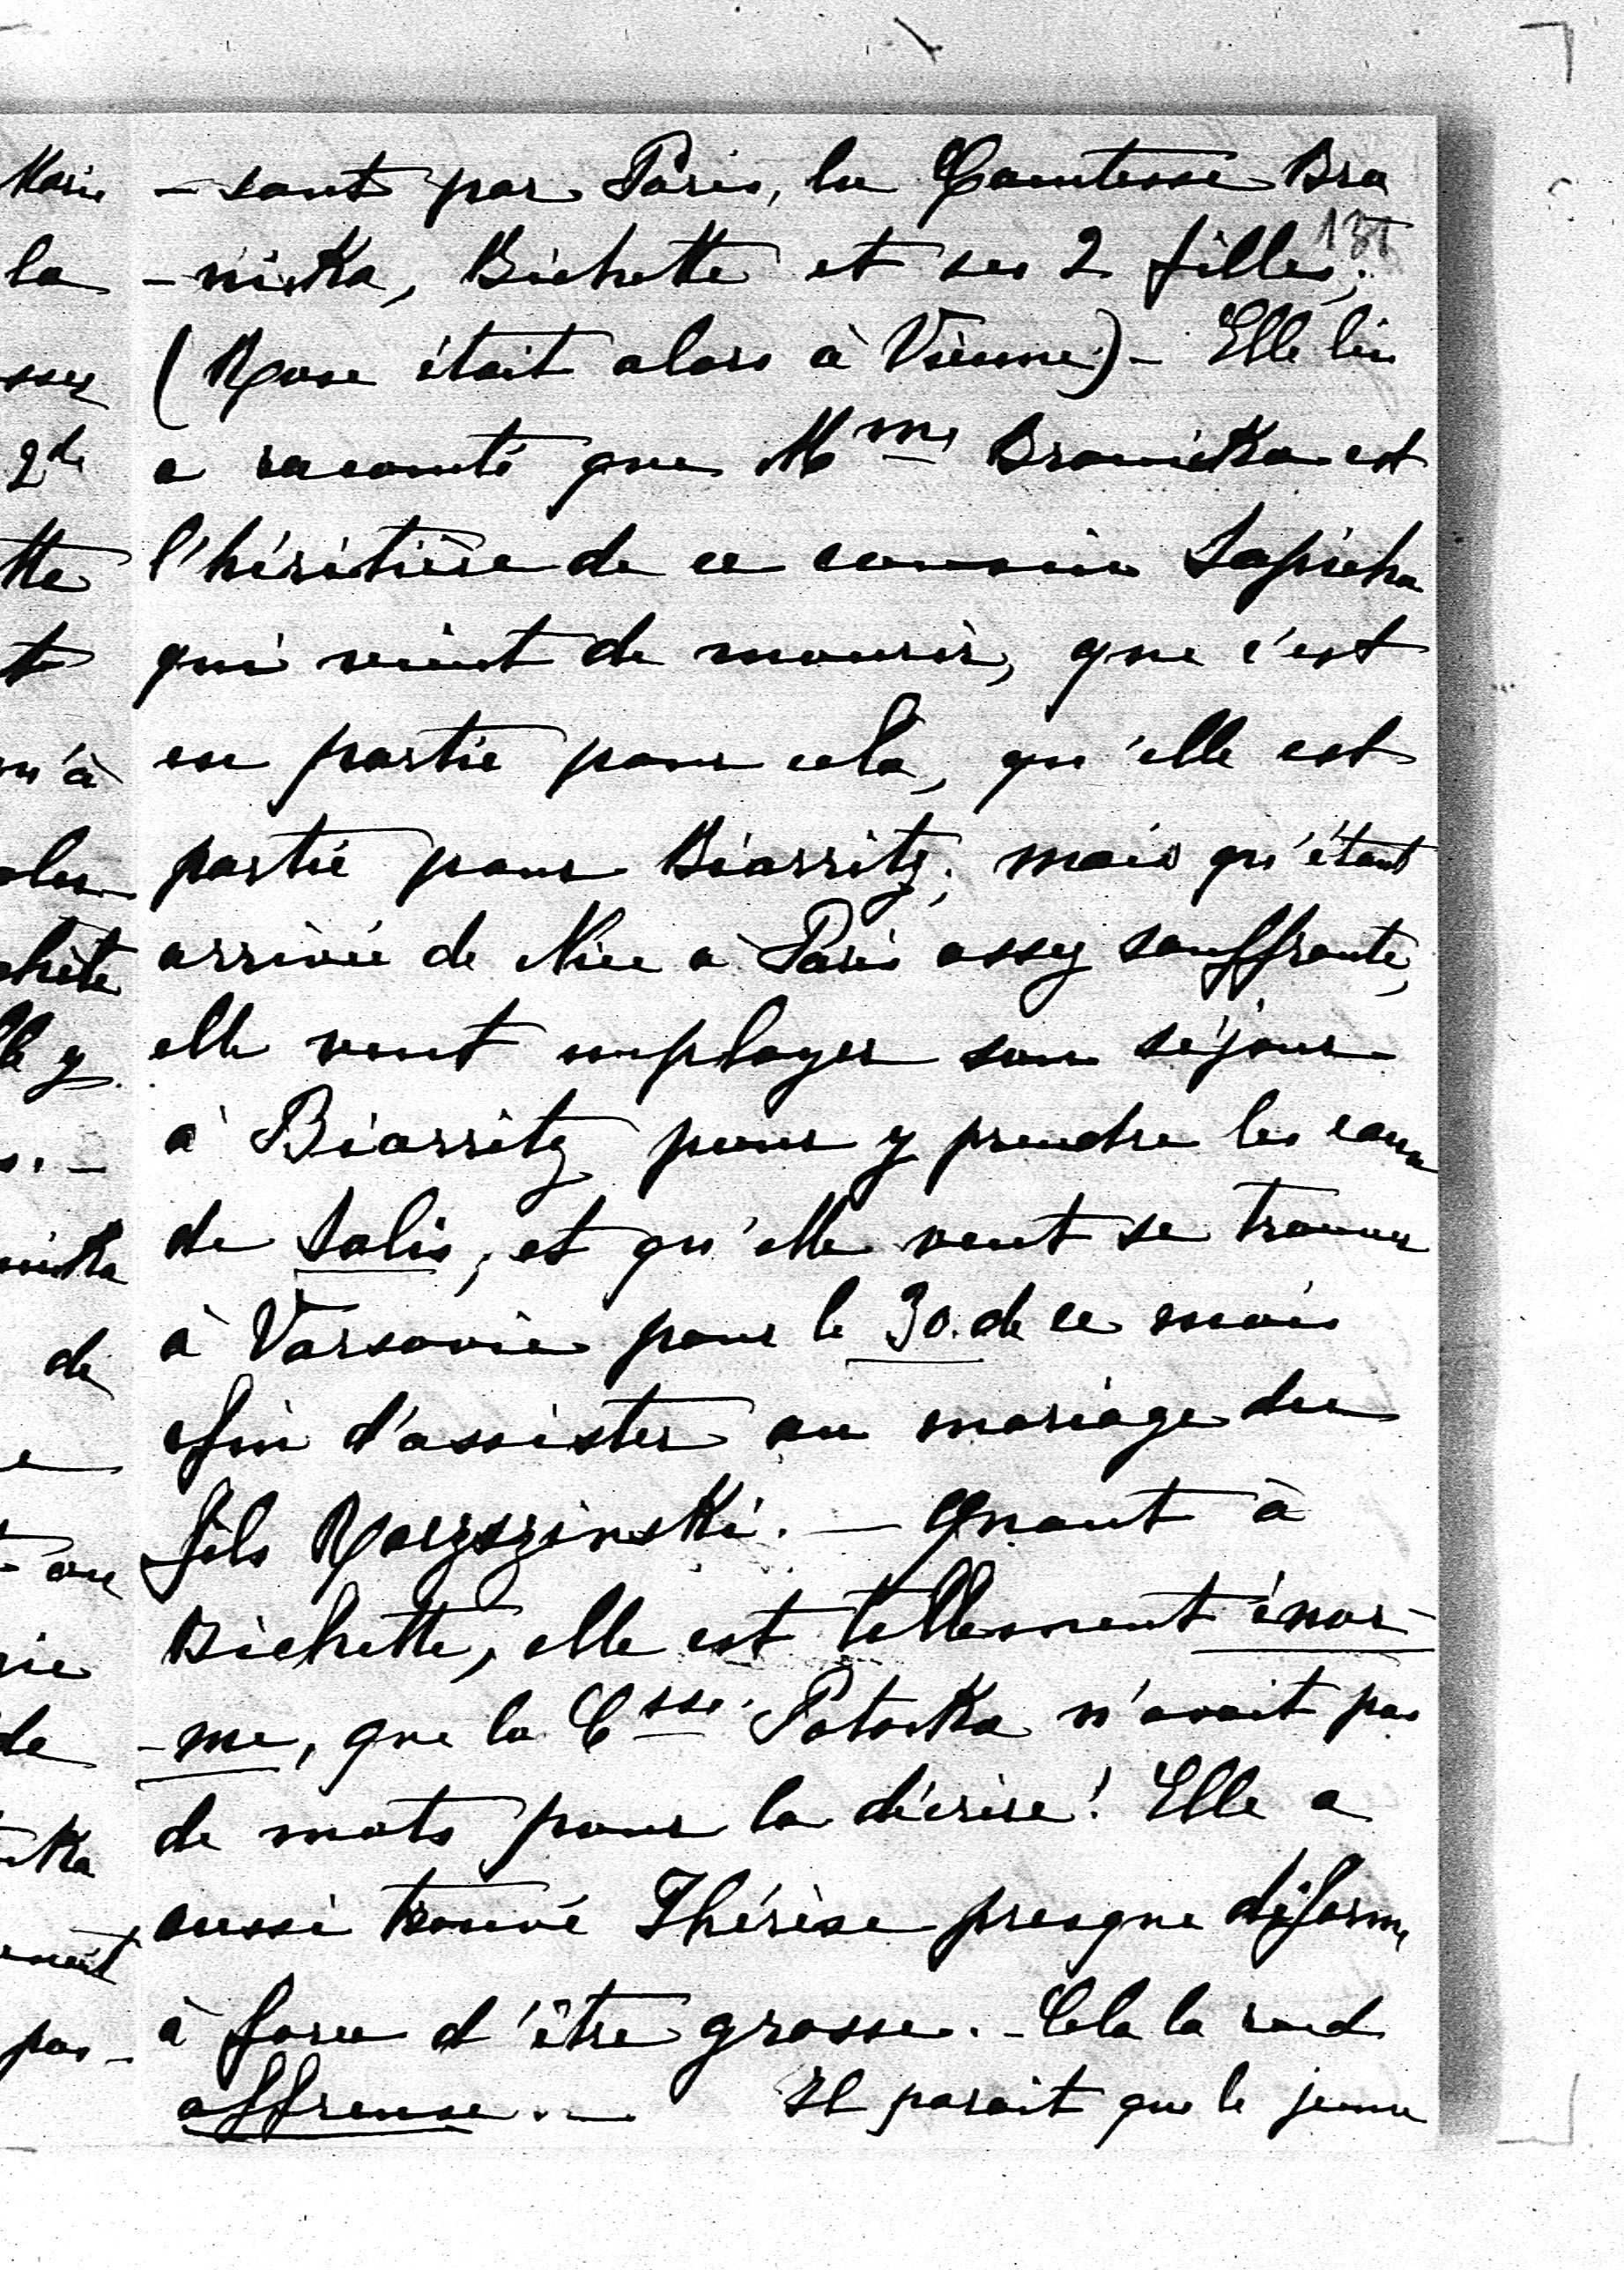 -sant par Paris, la Comtesse Bra
131
-nicka, Bichette et ses 2 filles;
(Rose était alors à Vienne) - Elle lui
a raconté que Mme Branicka est
l'héritière de ce cousin Sapieha
qui vient de mourir, que c'est
en partie pour cela, qu'elle est
partie pour Biarritz; mais qu'étant
arrivée de Nice à Paris assez souffrante,
elle veut employer son séjour
à Biarritz pour y prendre les eaux
de Salis, et qu'elle veut se trouver
à Varsovie pour le 30. de ce mois
afin d'assister au mariage du
fils - Quant à
Bichette, elle est tellement énor-
-me, que la Csse. Potocka n'avait pas
de mots pour la décrire! Elle a
aussi trouvé Thérèse presque difforme
à force d'être grosse. - Cela la rend
affreuse. - Il parait que le jeune